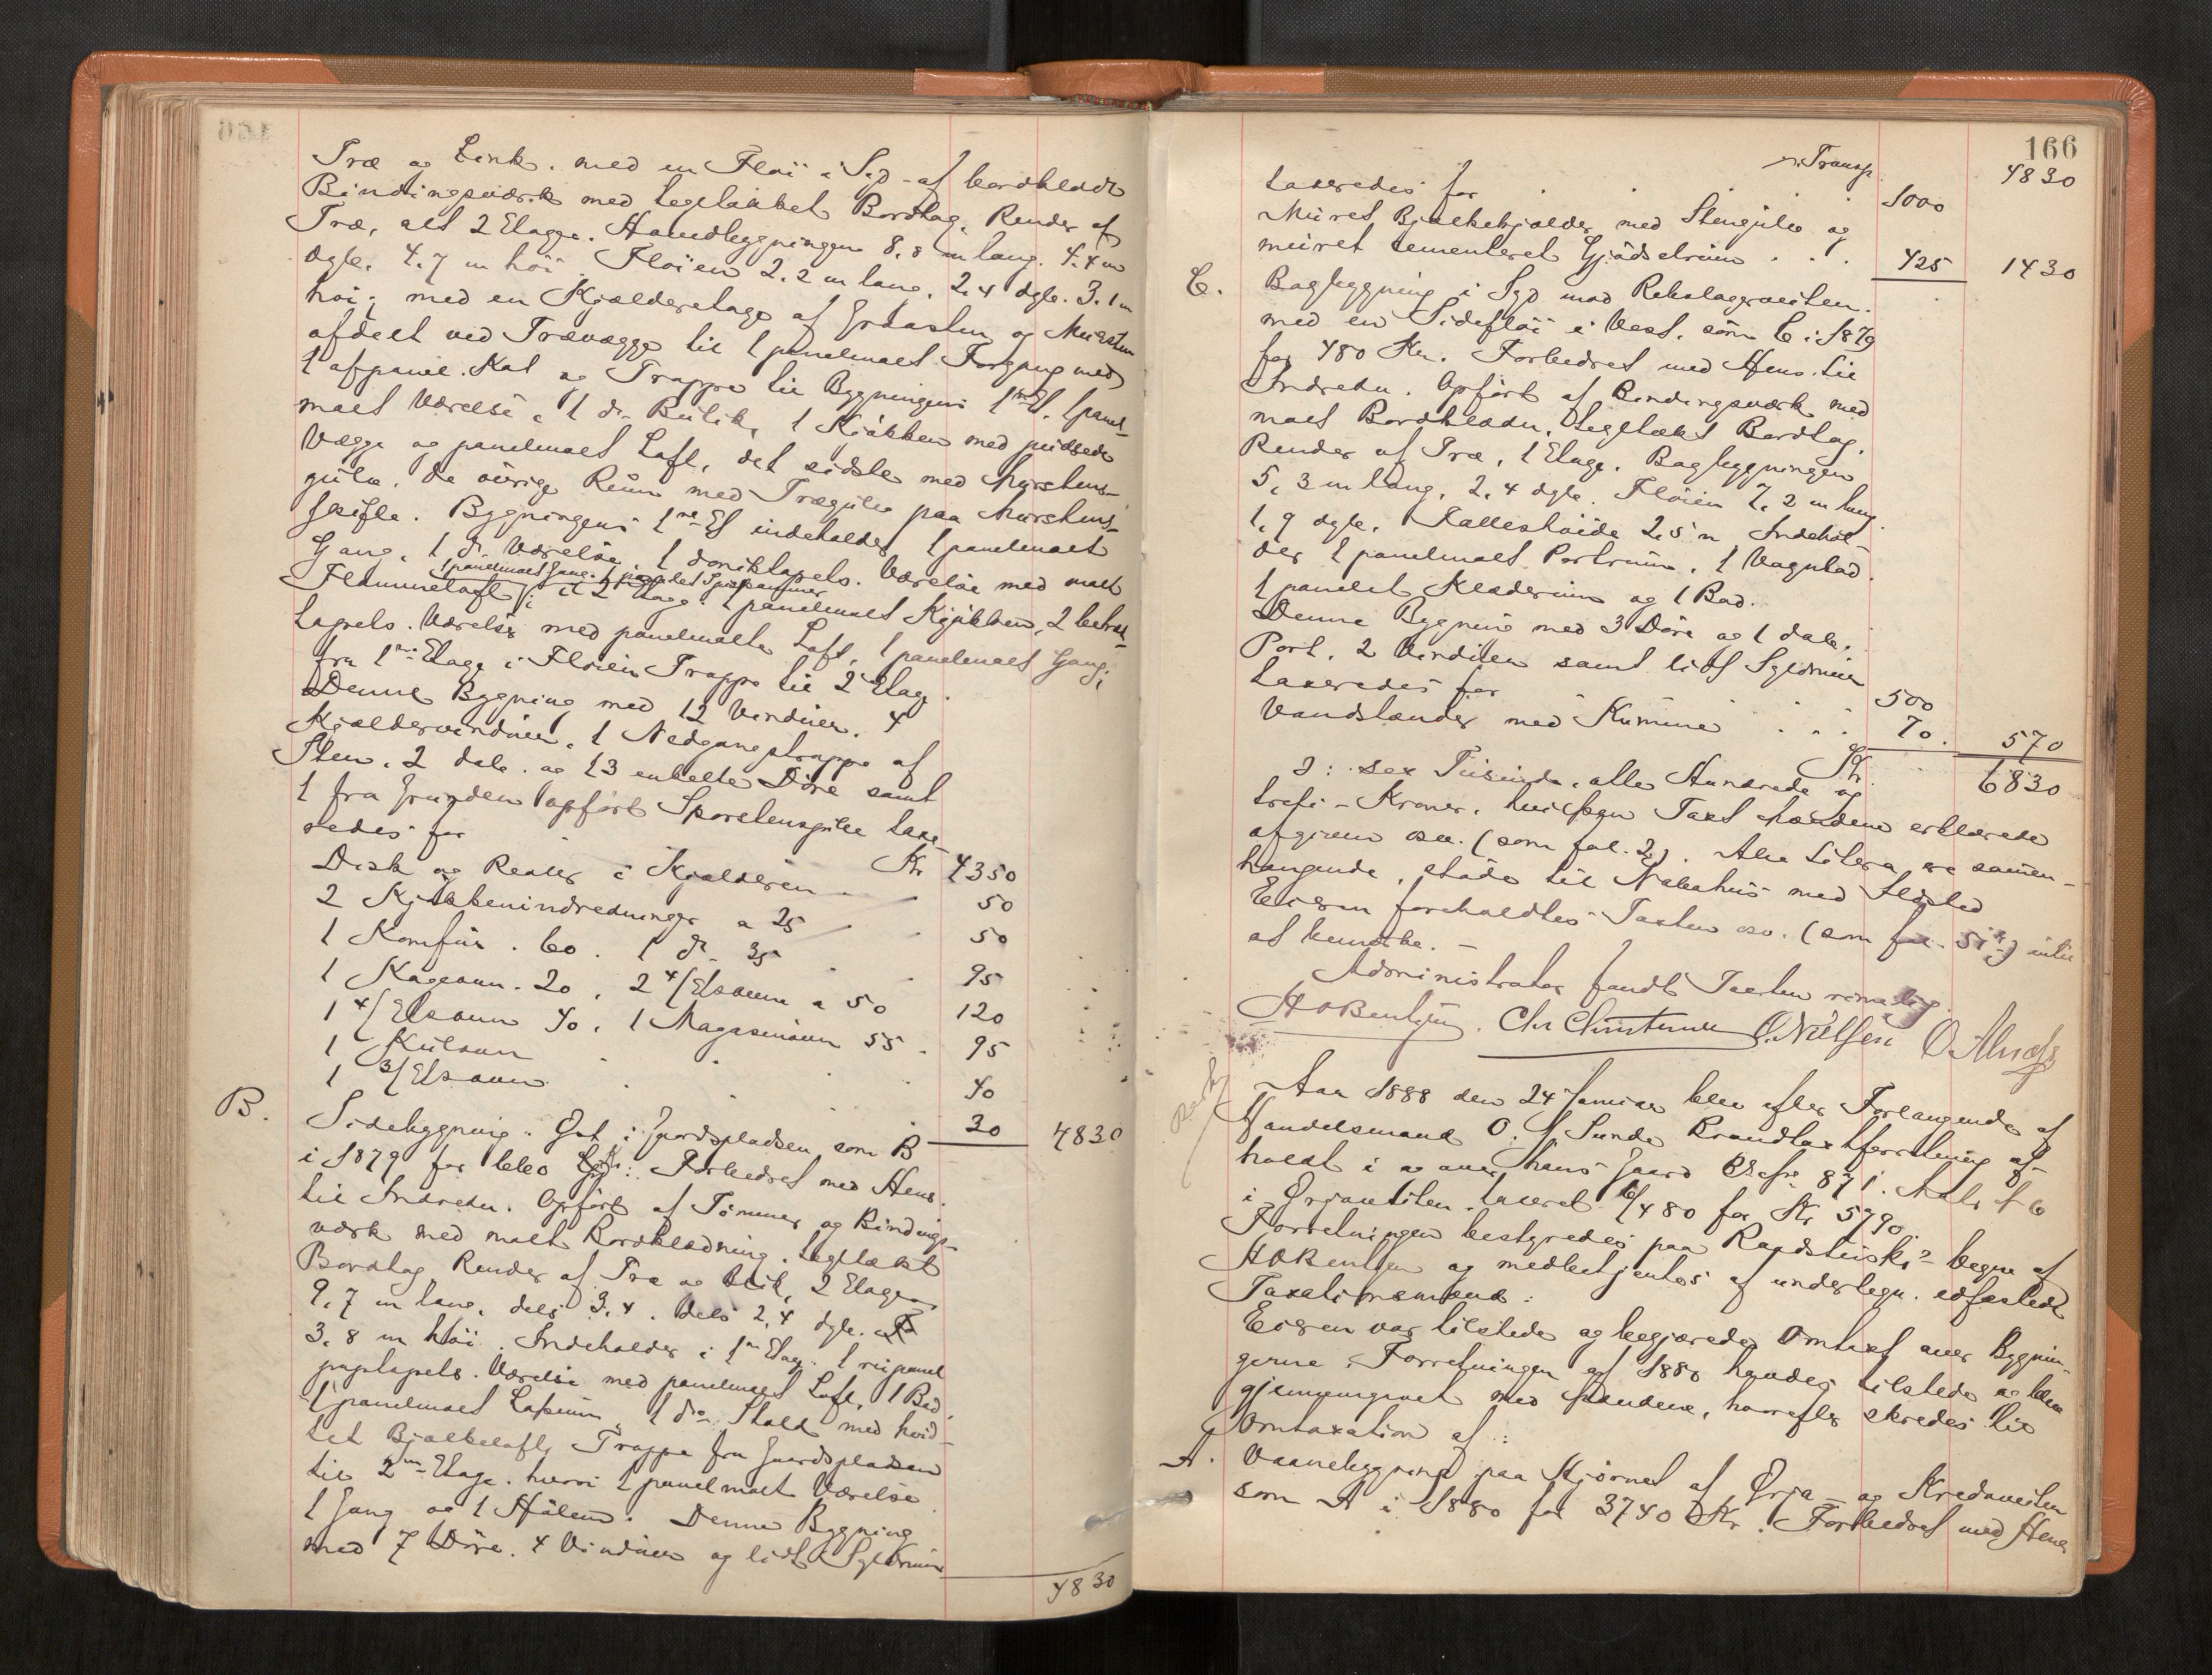 Træ og Zink. med en Flöi i Syd - af bordklædt
Bindingsværk med tegltækket Bordtag, Render af
Træ, alt 2 Etager. Hovedbygningen 8,8 m lang. 4.4 m
dyb. 4.7 m höi. Flöien 2.2 m lang, 2.4 dyb. 3.1 m
höi; med en Kjælderetage af Graasten og Mursten
afdelt ved Trævægge til 1 panelmalt Forgang med
1 afpanel. Kot og Trappe til Bygningens 1ste Et. 1 panel-
malt Værelse, 1 do Butik, 1 Kjökken med pudsede
Vægge og panelmalt Loft, det sidste med Murstens-
gulv. De övrige Rum med Trægulv paa Murstens-
Bygningens 1ste Et indeholder 1 panelmalt
Gang, 1 do Værelse, 1 tapets. Værelse med malt
1 panelmalt Gang. 1 panelet Spisekammer
i 2 Etage 1 panelmalt Kjökken, 2 betræk-
tapets. Værelser med panelmalte Loft, 1 panelmalt Gang;
fra 1ste Etage i Flöien Trappe til 2 Etage.
Denne Bygning med 12 Vinduer. 4
Kjældervinduer, 1 Nedgangstrappe af
Sten, 2 dob. og 13 enkelte Döre samt
1 fra Grunden opfört Skorstenspibe taxe-
redes for Kr 4350
Disk og Reoler i Kjælderen 50
2 Kjökkenindredninger a 25 50
1 Komfur. 60. 1 do 35 95
1 Kogeovn. 20, 2 4/Etsovne a 50 120
1 4/Etsovn 40, 1 Magasinovn 55 95
1 Kulovn 40
1 3/Etsovn 30 4830
B. Sidebygning i Öst i Gaardspladsen som B
i 1879 for Forbedret med Hens.
til Indredn. Opfört af Tömmer og Bindings-
værk med malt Bordklædning. tegltækt
Bordtag Render af Træ og Blik, 2 Etager
9.7 m lang, dels 3.4. dels 2,4 dyb.
3.8 m höi. Indeholder i 1ste Etag. 1
papirtapets. Værelse med panelmalt Loft, 1 Bod,
1 panelmalt 1 do Stald med hvid-
tet Bjælkeloft, Trappe fra Gaardspladsen
til 2den Etage. hvori 1 panelmalt Værelse
1 Gang og 1 Denne Bygning
med 7 Döre. 4 Vinduer og lidt Syldmur
4830
166
Transp. 4830
taxeredes for 1000
Muret Bjælkekjælder med Stengulv og
muret cementeret Gjödselrum . . . 425 1430
C. Bagbygning i Syd mod
med en Sideflöi i Vest, som C i 1879
for 480 Kr. Forbedret med Hens. til
Indredn. Opfört af Bindingsværk med
malt Bordklædn., tegltækt Bordtag,
Render af Træ, 1 Etage. Bagbygningen
5,3 m lang, 2,4 dyb. Flöien 7,2 m lang.
1.9 dyb. Fælleshöide 2,5 m Indehol-
der 1 panelmalt Portrum, 1 Vognbod.
1 panelet Klæderum og 1 Bod.
Denne Bygning med 3 Döre og 1 dob.
Port, 2 Vinduer samt lidt Syldmur
taxeredes for 500
Vandstænder med Kumme . . . 70. 570
Kr 6830
ɔ: sex Tusinde, otte Hundrede og
treti - Kroner, hvilken Taxt Mændene erklærede
afgiven osv. (som fol. 2). Alle Litera ere sammen-
hængende, stöde til Nabohus med Ildsted
Eieren foreholdtes Taxten osv. (som fol. 51) intet
at bemærke. -
Administrator fandt Taxten rimelig.
H O Bentzen. Chr Christensen O. Nielsen O. Alnæs
Aar 1888 den 24 Januar blev efter Forlangende af
Handelsmand O. Sunde Brandtaxtforretning af-
holdt i og over hans Gaard 871. Matr
i Örjaveiten taxeret 6/4 80 for Kr 5790.
Forretningen bestyredes paa Raadstuskr's Vegne af
H O Bentzen og medbetjentes af undertegn. edfæstede
Taxationsmænd:
Eieren var tilstede og begjærede Omtaxt over Bygnin-
gerne. Forretningen af 1880 havdes tilstede og blev
gjennemgaaet med Mændene, hvorefter skredes til
Omtaxation af:
A. Vaanebygning paa Hjörnet af Örja- og Kredsveiten
som A i 1880 for 3740 Kr. Forbedret med Hens